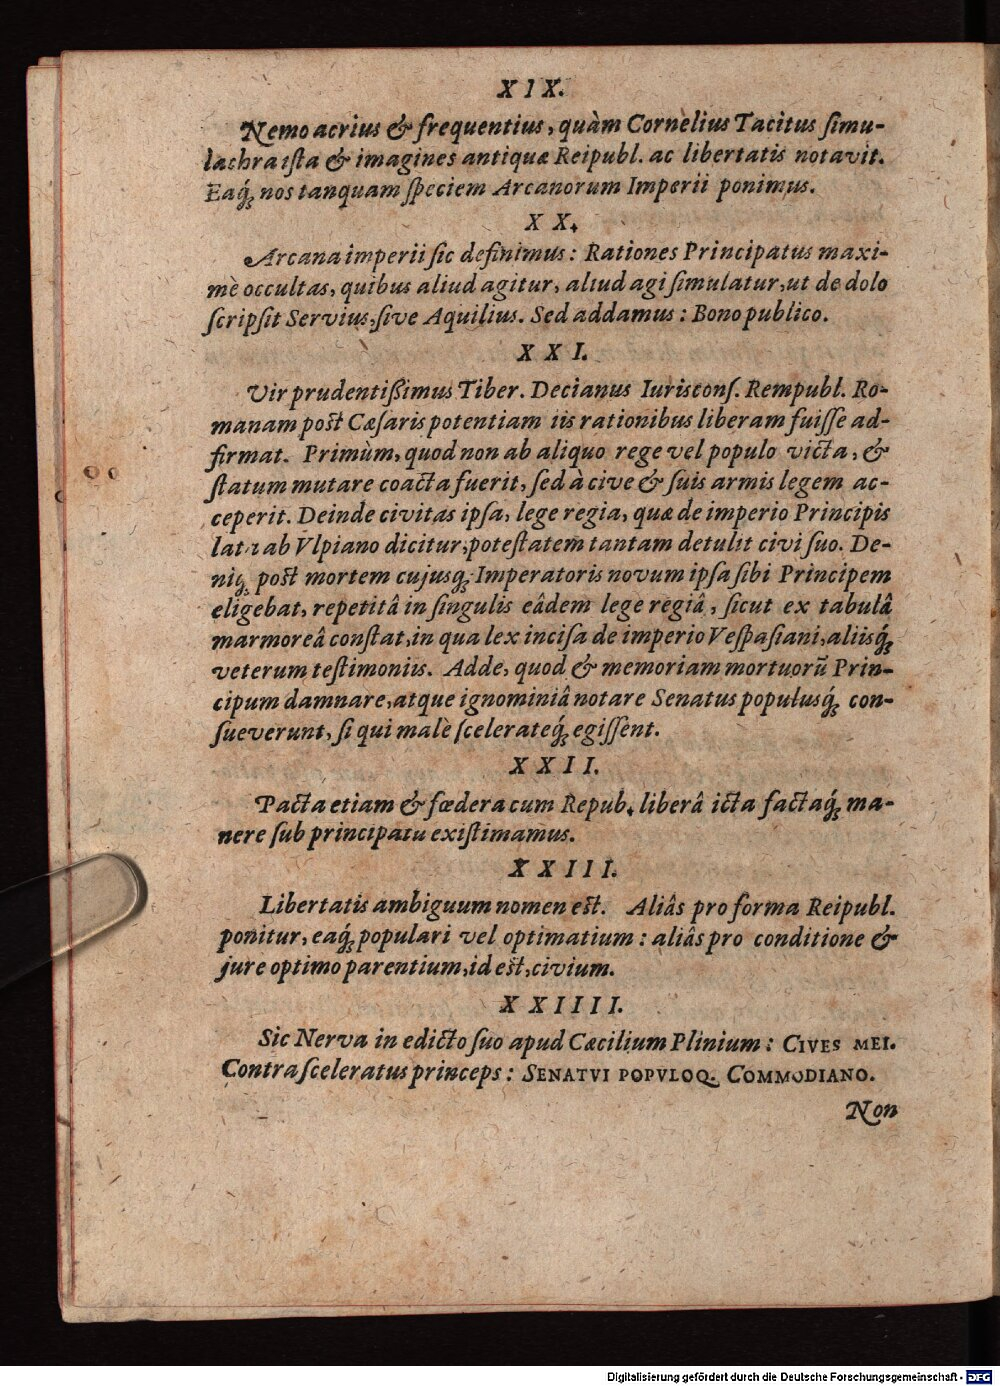 XIX.
Nemo acrius & frequentius, quàm Cornelius Tacitus simu-
lachra ista & imagines antiquæ Reipubl. ac libertatis notavit.
Eaq́; nos tanquam speciem Arcanorum Imperii ponimus.
XX.
Arcana imperii sic definimus: Rationes Principatus maxi-
mè occultas, quibus aliud agitur, aliud agi simulatur, ut de dolo
scripsit Servius, sive Aquilius. Sed addamus: Bono publico.
XXI.
Vir prudentißimus Tiber. Decianus Iurisconſ. Rempubl. Ro-
manam post Cæsaris potentiam iis rationibus liberam fuisse ad-
firmat. Primùm, quod non ab aliquo rege vel populo victa, &
statum mutare coacta fuerit, sed à cive & suis armis legem ac-
ceperit. Deinde civitas ipsa, lege regia, quæ de imperio Principis
lata ab Vlpiano dicitur, potestatem tantam detulit civi suo. De-
niq; post mortem cujusq; Imperatoris novum ipsa sibi Principem
eligebat, repetitâ in singulis eâdem lege regiâ, sicut ex tabulâ
marmoreâ constat, in qua lex incisa de imperio Vespasiani, aliisq́;
veterum testimoniis. Adde, quod & memoriam mortuorũ Prin-
cipum damnare, atque ignominiâ notare Senatus populusq́; con-
sueverunt, si qui malè scelerateq́; egissent.
XXII.
Pacta etiam & fœdera cum Repub. liberâ icta factaq́; ma-
nere sub principatu existimamus.
XXIII.
Libertatis ambiguum nomen est. Aliâs pro forma Reipubl.
ponitur, eaq́; populari vel optimatium: aliâs pro conditione &
jure optimo parentium, id est, civium.
XXIIII.
Sic Nerva in edicto suo apud Cæcilium Plinium: CIVES MEI.
Contra sceleratus princeps: SENATVI POPVLOQ. COMMODIANO.
Non
Digitalisierung gefördert durch die Deutsche Forschungsgemeinschaft - DFG